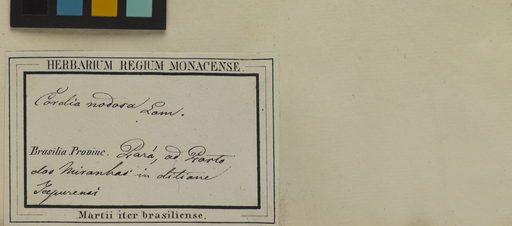 HERBARIUM REGIUM MONACENSE.
Cordia nodosa Lam.
Brasilia Provinc. Pará, ad Porto
dos Miranhas in ditione
Japurensi
Martii iter brasiliense.